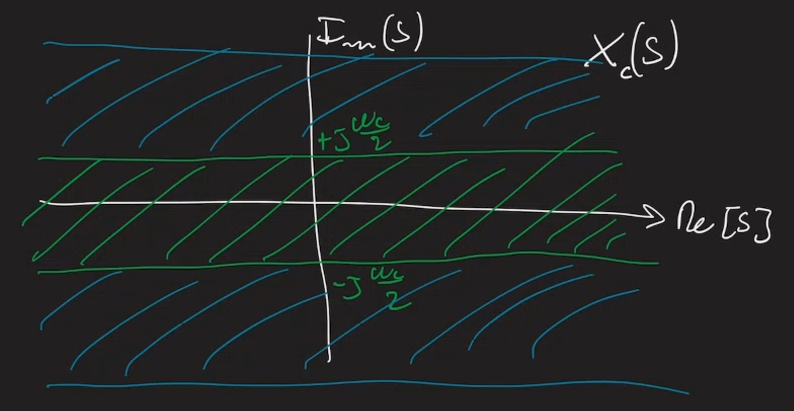 Im(S)
X_c(S)
+J ω_c/2
Re[S]
-J ω_c/2